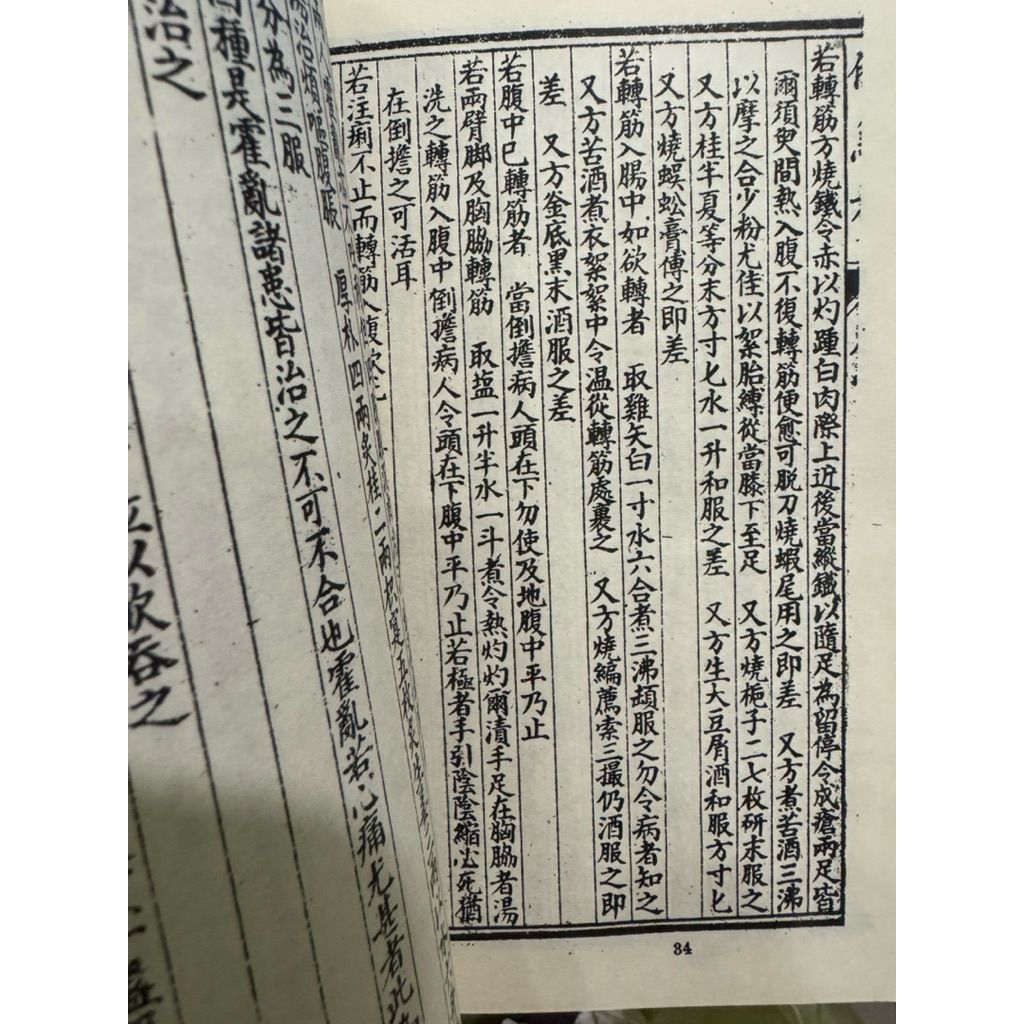 若轉筋方燒鐵令赤以灼踵白肉際上近後當縱鐵以隨足為留停令成瘡兩足皆
爾須臾間熱入腹不復轉筋便愈可脫刀燒蝦尾用之即差 又方煮苦酒三沸
以摩之合少粉尤佳以絮胎縛從當膝下至足 又方燒梔子二七枚研末服之
又方桂半夏等分末方寸匕水一升和服之差 又方生大豆屑酒和服方寸匕
又方燒蜈蚣膏傅之即差
若轉筋入腸中如欲轉者 取雞矢白一寸水六合煮三沸頓服之勿令病者知之
又方苦酒煮衣絮絮中令温從轉筋處裹之 又方燒編薦索三撮仍酒服之即
差 又方釜底黑末酒服之差
若腹中已轉筋者 當倒擔病人頭在下勿使及地腹中平乃止
若兩臂脚及胸脇轉筋 取盐一升半水一斗煮令熱灼灼爾漬手足在胸脇者湯
洗之轉筋入腹中 倒擔病人令頭在下腹中平乃止若極者手引陰陰縮必死猶
在倒擔之可活耳
若注痢不止而轉筋入腹欲死
厚朴四兩炙桂二兩
治煩嘔腹脹
分為三服
種是霍亂諸患皆治之不可不合也霍亂若心痛尤甚者此
治之
以飲吞之
34